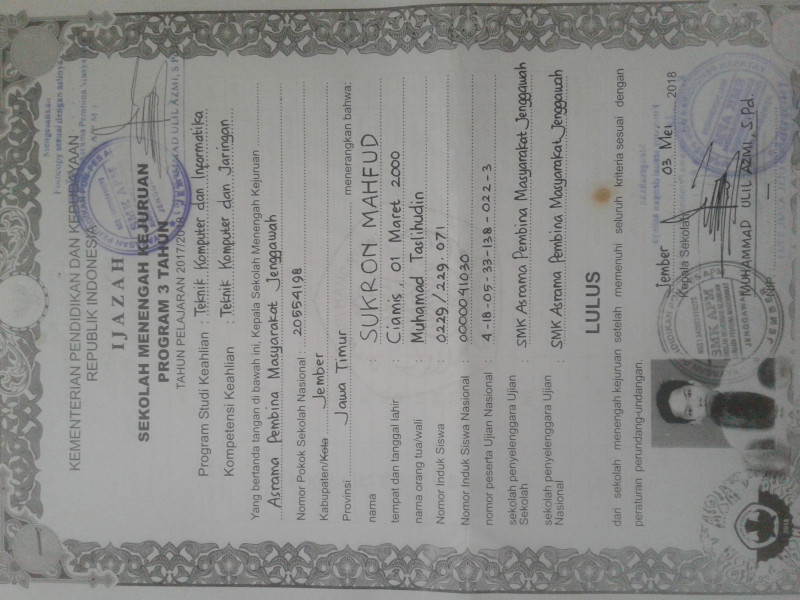 KEMENTERIAN PENDIDIKAN DAN KEBUDAYAAN
REPUBLIK INDONESIA
IJAZAH
SEKOLAH MENENGAH KEJURUAN
PROGRAM 3 TAHUN
TAHUN PELAJARAN 2017/2018
Program Studi Keahlian : Teknik Komputer dan Informatika
Kompetensi Keahlian : Teknik Komputer dan Jaringan
Yang bertanda tangan di bawah ini, Kepala Sekolah Menengah Kejuruan
Asrama Pembina Masyarakat Jenggawah
Nomor Pokok Sekolah Nasional : 20554198
Kabupaten/Kota Jember
Provinsi Jawa Timur menerangkan bahwa:
nama : SUKRON MAHFUD
tempat dan tanggal lahir : Ciamis, 01 Maret 2000
nama orang tua/wali : Muhamad Taslihudin
Nomor Induk Siswa : 0229/229.071
Nomor Induk Siswa Nasional : 0000041030
nomor peserta Ujian Nasional : 4-18-05-33-138-022-3
sekolah penyelenggara Ujian Sekolah : SMK Asrama Pembina Masyarakat Jenggawah
sekolah penyelenggara Ujian Nasional : SMK Asrama Pembina Masyarakat Jenggawah
LULUS
dari sekolah menengah kejuruan setelah memenuhi seluruh kriteria sesuai dengan
peraturan perundang-undangan.
Jember 03 Mei 2018
Kepala Sekolah
MUHAMMAD ULIL AZMI, S.Pd.
NIP.